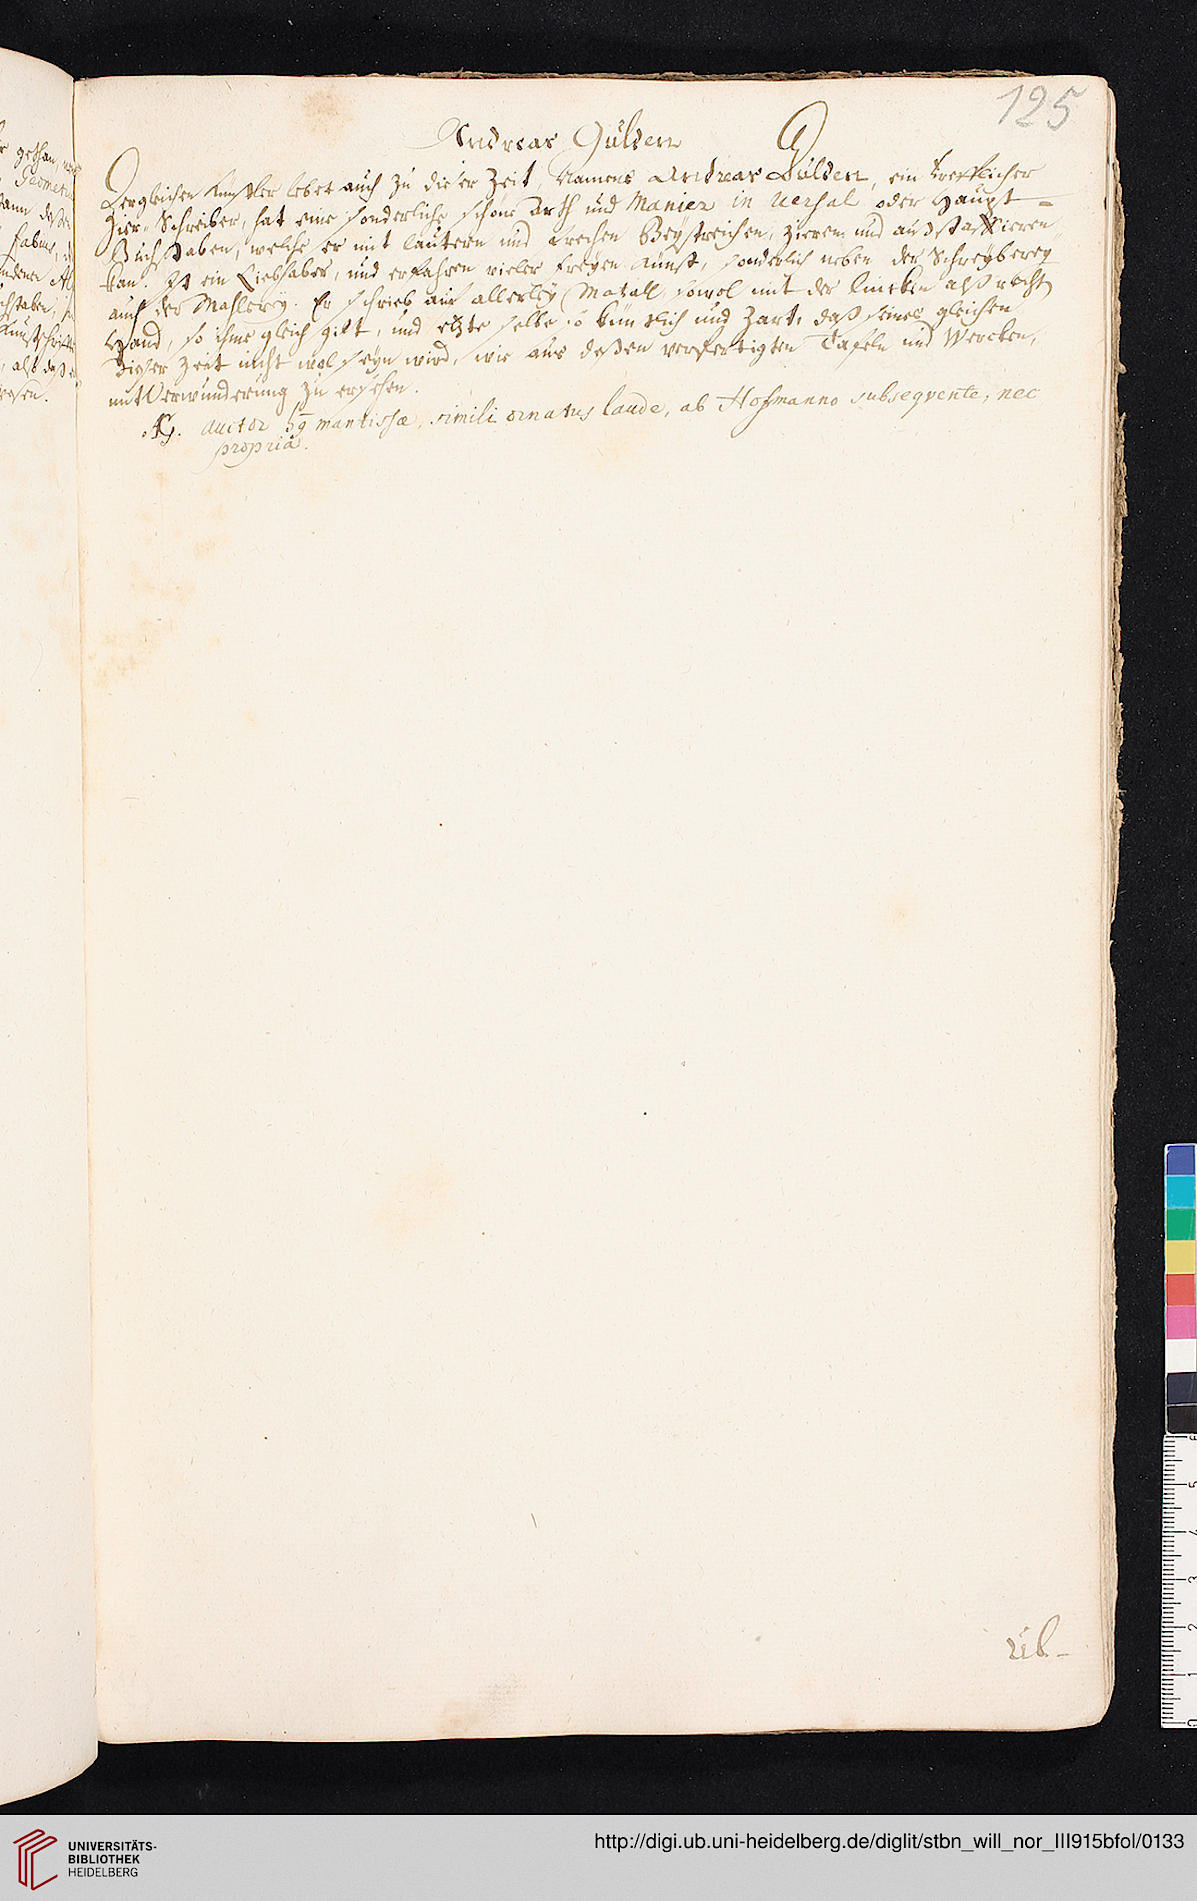 125
Andreas Gulden
Dergleichen Künstler lebet auch zu dieser Zeit, Namens Andreas Gulden, ein trefflicher
Zier-Schreiber, hat eine sonderliche schöne Arth und Manier in Versal oder Haupt-
Buchstaben, welche er mit lautern und frechen Beystreichen, zieren und außstaffieren
kan. Ist ein Liebhaber, und erfahren vieler freyen Künst, sonderlich neben der Schreyberey
auch der Mahlerey. Er schrieb auf allerley Metall, sowol mit der lincken alß recht
Hand, so ihme gleich gilt, und etzte selbe so künstlich und zart, daß seines gleichen
dieser Zeit nicht wol seyn wird, wie aus deßen verfertigten Tafeln und Wercken,
mit Verwunderung zu ersehen.
auctor mantissæ, simili ornatus laude, ab Hofmanno subseqvente, nec
propria.
üb-
gethan,
Geometri
dann deßen
fabur,
chstaben,
Kunstschrifft
, alß daß
wesen.
UNIVERSITÄTS-
BIBLIOTHEK
HEIDELBERG
http://digi.ub.uni-heidelberg.de/diglit/stbn_will_nor_III915bfol/0133
6
5
4
3
2
1
0